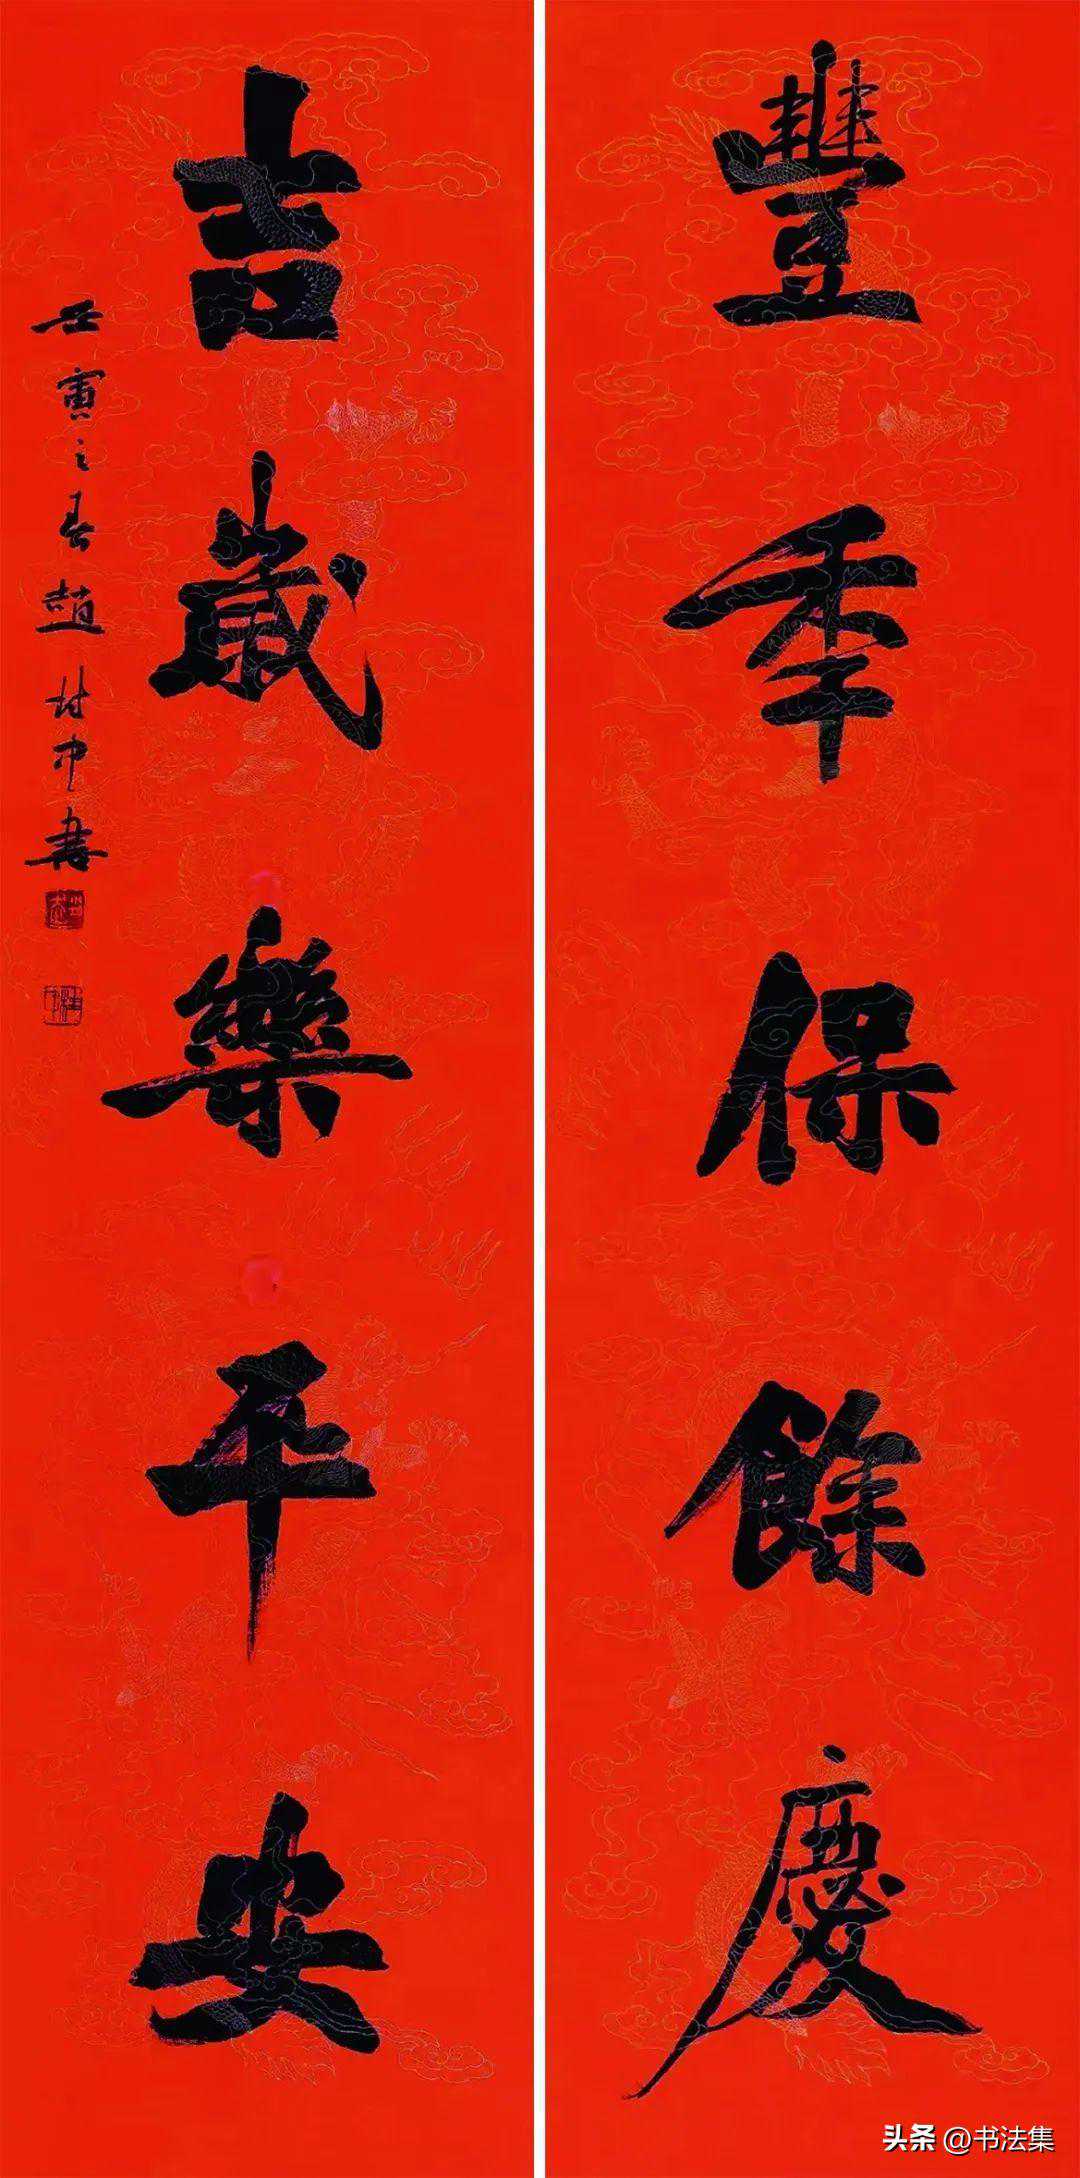 豐秊保餘慶
吉歲樂平安
壬寅之春趙中書
头条 @书法集